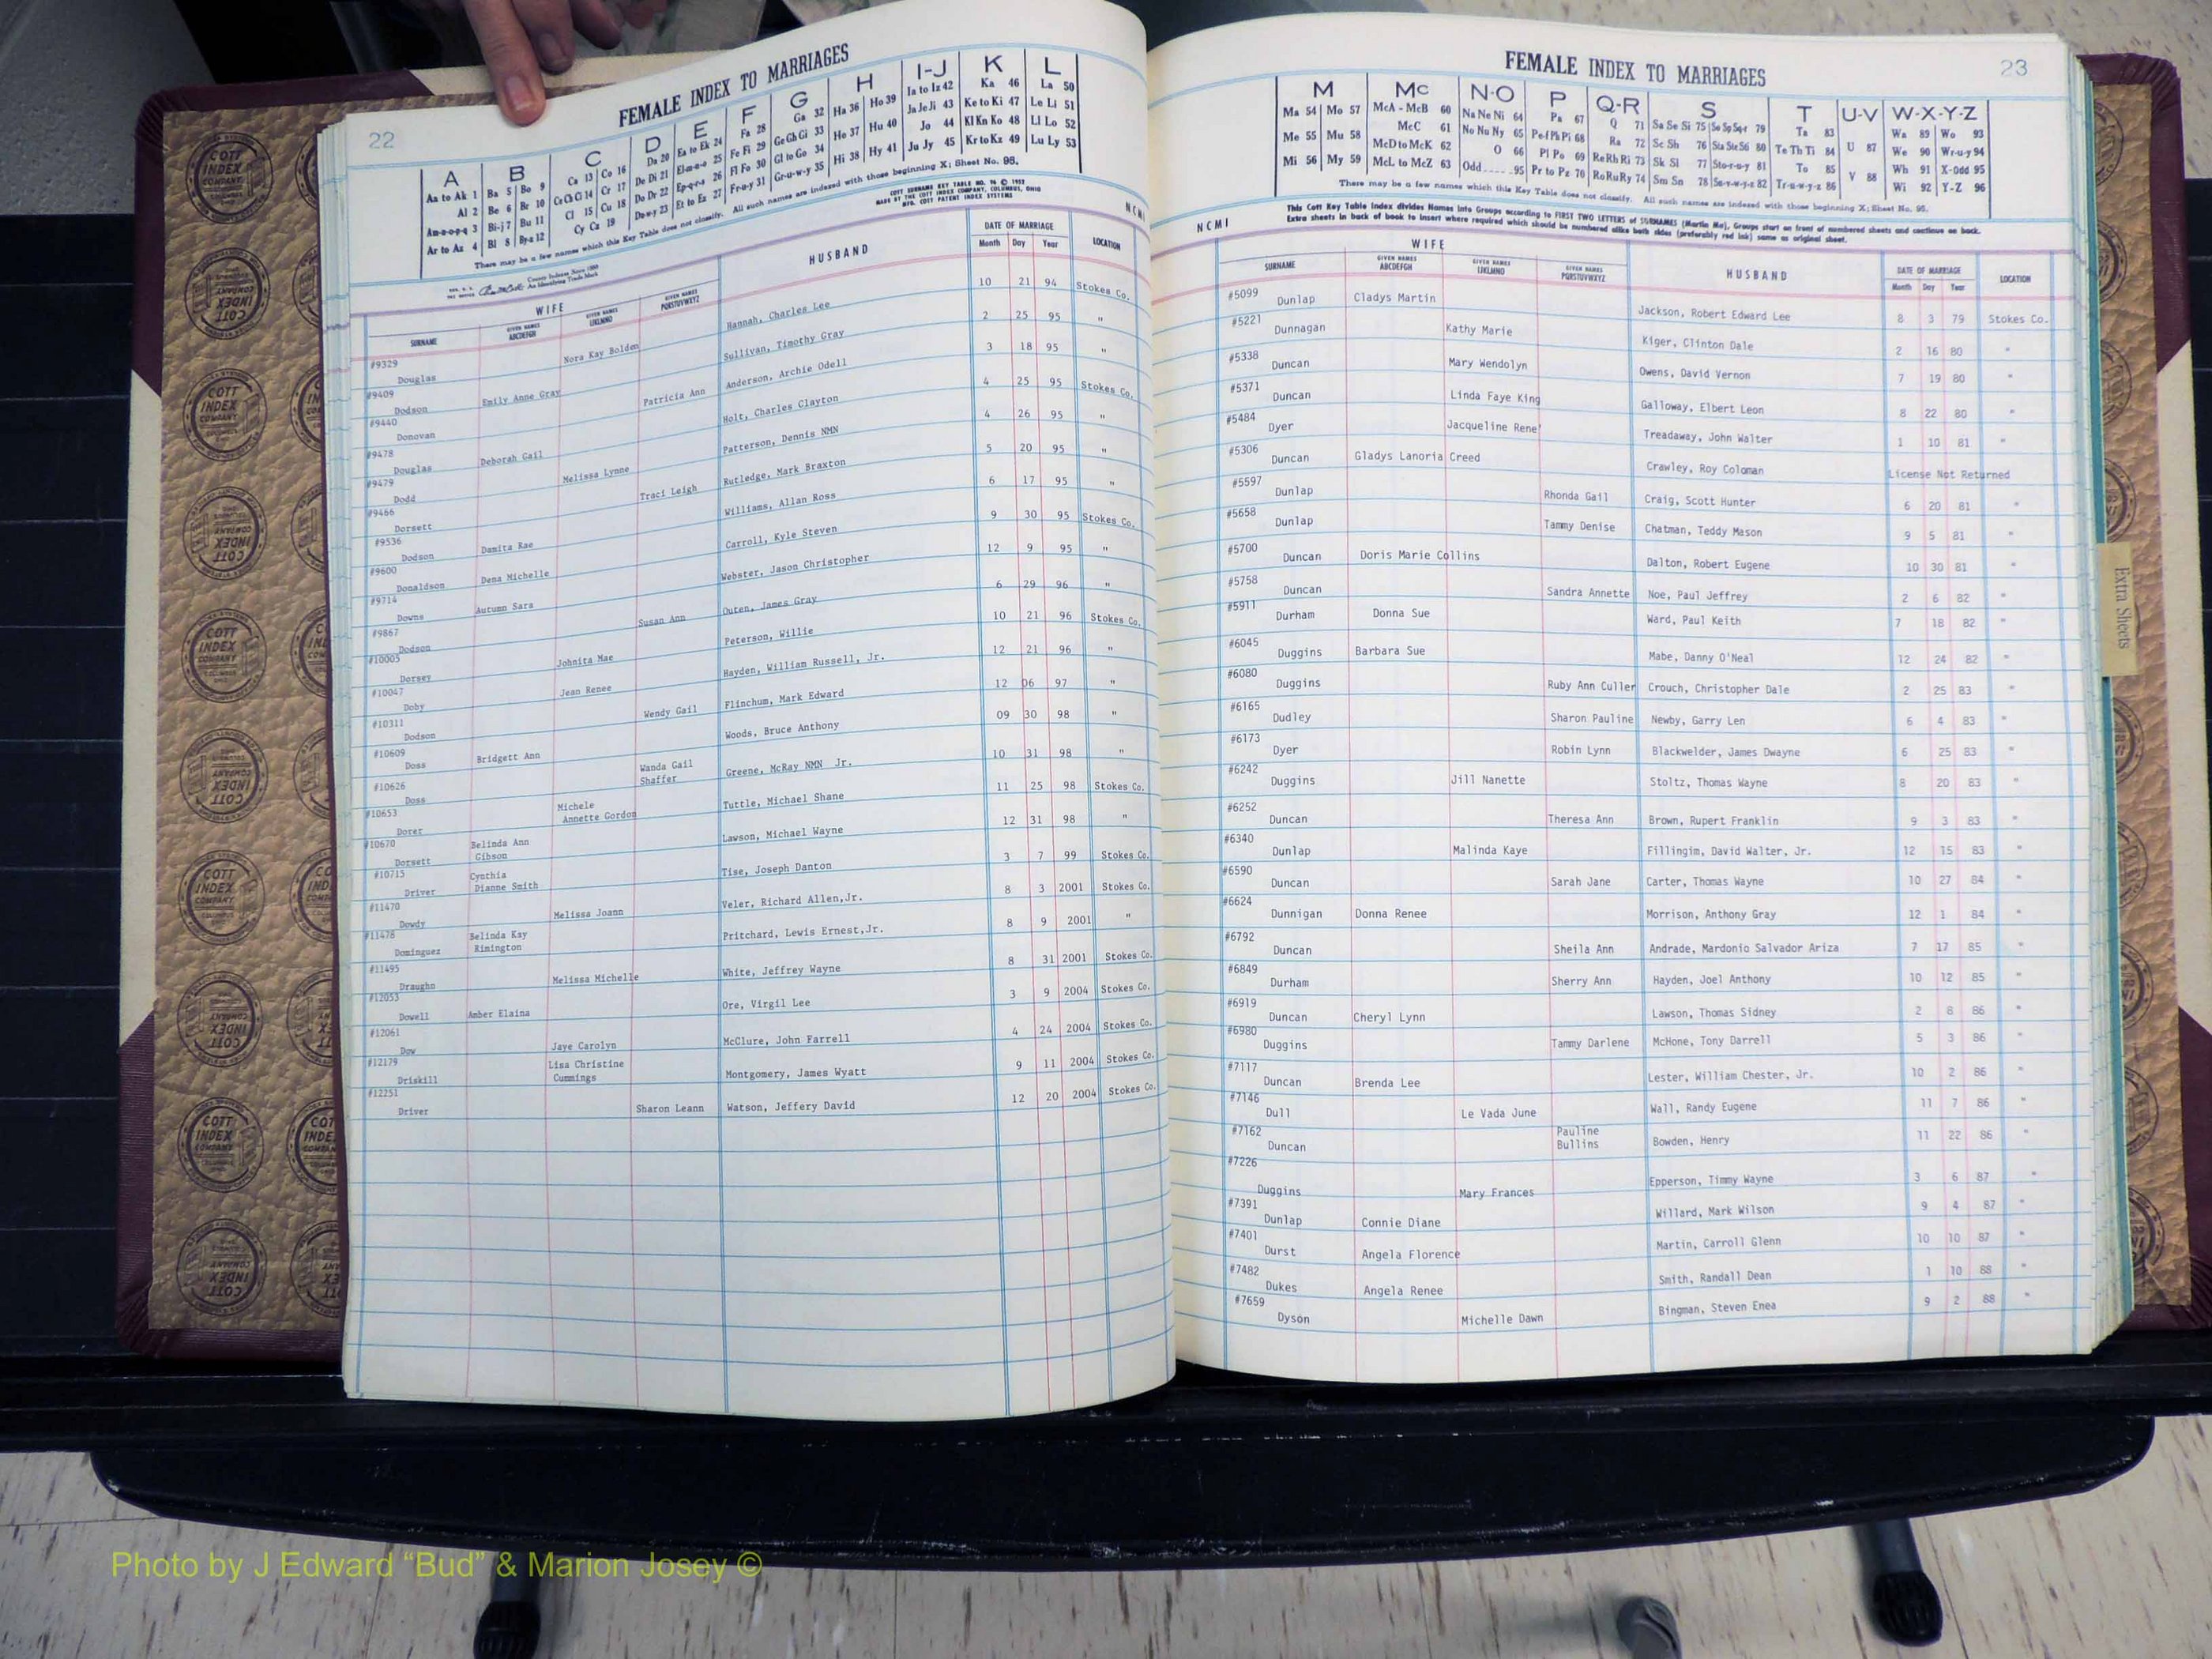 22
FEMALE INDEX TO MARRIAGES
A B C D E F G H I-J K L
Aa to Ak 1 Ba 5 Bo 9 Ca 13 Co 16 Da 20 Ea to Ek 24 Fa 28 Ga 32 Ha 36 Ho 39 Ia to Iz 42 Ka 46 La 50
Al 2 Be 6 Br 10 Ce Ch Ci 14 Cr 17 De Di 21 El-m-n-o 25 Fe Fi 29 Ge Gh Gi 33 He 37 Hu 40 Ja Je Ji 43 Ke to Ki 47 Le Li 51
An-o-p-q 3 Bi-j 7 Bu 11 Cl 15 Cu 18 Do Dr 22 Ep-q-r-s 26 Fl Fo 30 Gl to Go 34 Hi 38 Hy 41 Jo 44 Kl Kn Ko 48 Ll Lo 52
Ar to Az 4 Bl 8 By-z 12 Cy Cz 19 Du-w-y 23 Et to Ez 27 Fr-u-y 31 Gr-u-w-y 35 Ju Jy 45 Kr to Kz 49 Lu Ly 53
There may be a few names which this Key Table does not classify. All such names are indexed with those beginning X; Sheet No. 95.
COTT SURNAME KEY TABLE NO. 96 © 1957
MADE BY THE COTT INDEX COMPANY, COLUMBUS, OHIO
MFD. COTT PATENT INDEX SYSTEMS
County Indexes Since 1888
An Identifying Trade Mark
NCMI
WIFE HUSBAND DATE OF MARRIAGE LOCATION
SURNAME GIVEN NAMES ABCDEFGH GIVEN NAMES IJKLMNO GIVEN NAMES PQRSTUVWXYZ Month Day Year
#9329 Douglas Nora Kay Bolden Hannah, Charles Lee 10 21 94 Stokes Co.
#9409 Dodson Emily Anne Gray Sullivan, Timothy Gray 2 25 95 "
#9440 Donovan Patricia Ann Anderson, Archie Odell 3 18 95 "
#9478 Douglas Deborah Gail Holt, Charles Clayton 4 25 95 Stokes Co.
#9479 Dodd Melissa Lynne Patterson, Dennis NMN 4 26 95 "
#9466 Dorsett Traci Leigh Rutledge, Mark Braxton 5 20 95 "
#9536 Dodson Damita Rae Williams, Allan Ross 6 17 95 "
#9600 Donaldson Dena Michelle Carroll, Kyle Steven 9 30 95 Stokes Co.
#9714 Downs Autumn Sara Webster, Jason Christopher 12 9 95 "
#9867 Dodson Susan Ann Outen, James Gray 6 29 96 "
#10005 Dorsey Johnita Mae Peterson, Willie 10 21 96 Stokes Co.
#10047 Doby Jean Renee Hayden, William Russell, Jr. 12 21 96 "
#10311 Dodson Wendy Gail Flinchum, Mark Edward 12 06 97 "
#10609 Doss Bridgett Ann Woods, Bruce Anthony 09 30 98 "
#10626 Doss Wanda Gail Shaffer Greene, McRay NMN Jr. 10 31 98 "
#10653 Dorer Michele Annette Gordon Tuttle, Michael Shane 11 25 98 Stokes Co.
#10670 Dorsett Belinda Ann Gibson Lawson, Michael Wayne 12 31 98 "
#10715 Driver Cynthia Dianne Smith Tise, Joseph Danton 3 7 99 Stokes Co.
#11470 Dowdy Melissa Joann Veler, Richard Allen,Jr. 8 3 2001 Stokes Co.
#11478 Dominguez Belinda Kay Rimington Pritchard, Lewis Ernest,Jr. 8 9 2001 "
#11495 Draughn Melissa Michelle White, Jeffrey Wayne 8 31 2001 Stokes Co.
#12053 Dowell Amber Elaina Ore, Virgil Lee 3 9 2004 Stokes Co.
#12061 Dow Jaye Carolyn McClure, John Farrell 4 24 2004 Stokes Co.
#12179 Driskill Lisa Christine Cummings Montgomery, James Wyatt 9 11 2004 Stokes Co.
#12251 Driver Sharon Leann Watson, Jeffery David 12 20 2004 Stokes Co.
FEMALE INDEX TO MARRIAGES
23
M Mc N-O P Q-R S T U-V W-X-Y-Z
Ma 54 Mo 57 McA - McB 60 Na Ne Ni 64 Pa 67 Q 71 Sa Se Si 75 So Sp Sq-r 79 Ta 83 U 87 Wa 89 Wo 93
Me 55 Mu 58 McC 61 No Nu Ny 65 Pe-f Ph Pi 68 Ra 72 Sc Sh 76 Sta Ste Sti 80 Te Th Ti 84 V 88 We 90 Wr-u-y 94
Mi 56 My 59 McD to McK 62 O 66 Pl Po 69 Re Rh Ri 73 Sk Sl 77 Sto-r-u-y 81 To 85 Wh 91 X-Odd 95
McL to McZ 63 Odd 95 Pr to Pz 70 Ro Ru Ry 74 Sm Sn 78 Su-v-w-y-z 82 Tr-u-w-y-z 86 Wi 92 Y-Z 96
There may be a few names which this Key Table does not classify. All such names are indexed with those beginning X; Sheet No. 95.
This Cott Key Table Index divides Names into Groups according to FIRST TWO LETTERS of SURNAMES (Martin Ma), Groups start on front of numbered sheets and continue on back.
Extra sheets in back of book to insert where required which should be numbered alike both sides (preferably red ink) same as original sheet.
NCMI
WIFE HUSBAND DATE OF MARRIAGE LOCATION
SURNAME GIVEN NAMES ABCDEFGH GIVEN NAMES IJKLMNO GIVEN NAMES PQRSTUVWXYZ Month Day Year
#5099 Dunlap Cladys Martin Jackson, Robert Edward Lee 8 3 79 Stokes Co.
#5221 Dunnagan Kathy Marie Kiger, Clinton Dale 2 16 80 "
#5338 Duncan Mary Wendolyn Owens, David Vernon 7 19 80 "
#5371 Duncan Linda Faye King Galloway, Elbert Leon 8 22 80 "
#5484 Dyer Jacqueline Rene' Treadaway, John Walter 1 10 81 "
#5306 Duncan Gladys Lanoria Creed Crawley, Roy Coloman License Not Returned
#5597 Dunlap Rhonda Gail Craig, Scott Hunter 6 20 81 "
#5658 Dunlap Tammy Denise Chatman, Teddy Mason 9 5 81 "
#5700 Duncan Doris Marie Collins Dalton, Robert Eugene 10 30 81 "
#5758 Duncan Sandra Annette Noe, Paul Jeffrey 2 6 82 "
#5911 Durham Donna Sue Ward, Paul Keith 7 18 82 "
#6045 Duggins Barbara Sue Mabe, Danny O'Neal 12 24 82 "
#6080 Duggins Ruby Ann Culler Crouch, Christopher Dale 2 25 83 "
#6165 Dudley Sharon Pauline Newby, Garry Len 6 4 83 "
#6173 Dyer Robin Lynn Blackwelder, James Dwayne 6 25 83 "
#6242 Duggins Jill Nanette Stoltz, Thomas Wayne 8 20 83 "
#6252 Duncan Theresa Ann Brown, Rupert Franklin 9 3 83 "
#6340 Dunlap Malinda Kaye Fillingim, David Walter, Jr. 12 15 83 "
#6590 Duncan Sarah Jane Carter, Thomas Wayne 10 27 84 "
#6624 Dunnigan Donna Renee Morrison, Anthony Gray 12 1 84 "
#6792 Duncan Sheila Ann Andrade, Mardonio Salvador Ariza 7 17 85 "
#6849 Durham Sherry Ann Hayden, Joel Anthony 10 12 85 "
#6919 Duncan Cheryl Lynn Lawson, Thomas Sidney 2 8 86 "
#6980 Duggins Tammy Darlene McHone, Tony Darrell 5 3 86 "
#7117 Duncan Brenda Lee Lester, William Chester, Jr. 10 2 86 "
#7146 Dull Le Vada June Wall, Randy Eugene 11 7 86 "
#7162 Duncan Pauline Bullins Bowden, Henry 11 22 86 "
#7226 Duggins Mary Frances Epperson, Timmy Wayne 3 6 87 "
#7391 Dunlap Connie Diane Willard, Mark Wilson 9 4 87 "
#7401 Durst Angela Florence Martin, Carroll Glenn 10 10 87 "
#7482 Dukes Angela Renee Smith, Randall Dean 1 10 88 "
#7659 Dyson Michelle Dawn Bingman, Steven Enea 9 2 88 "
Extra Sheets
COTT INDEX COMPANY
Photo by J Edward “Bud” & Marion Josey ©